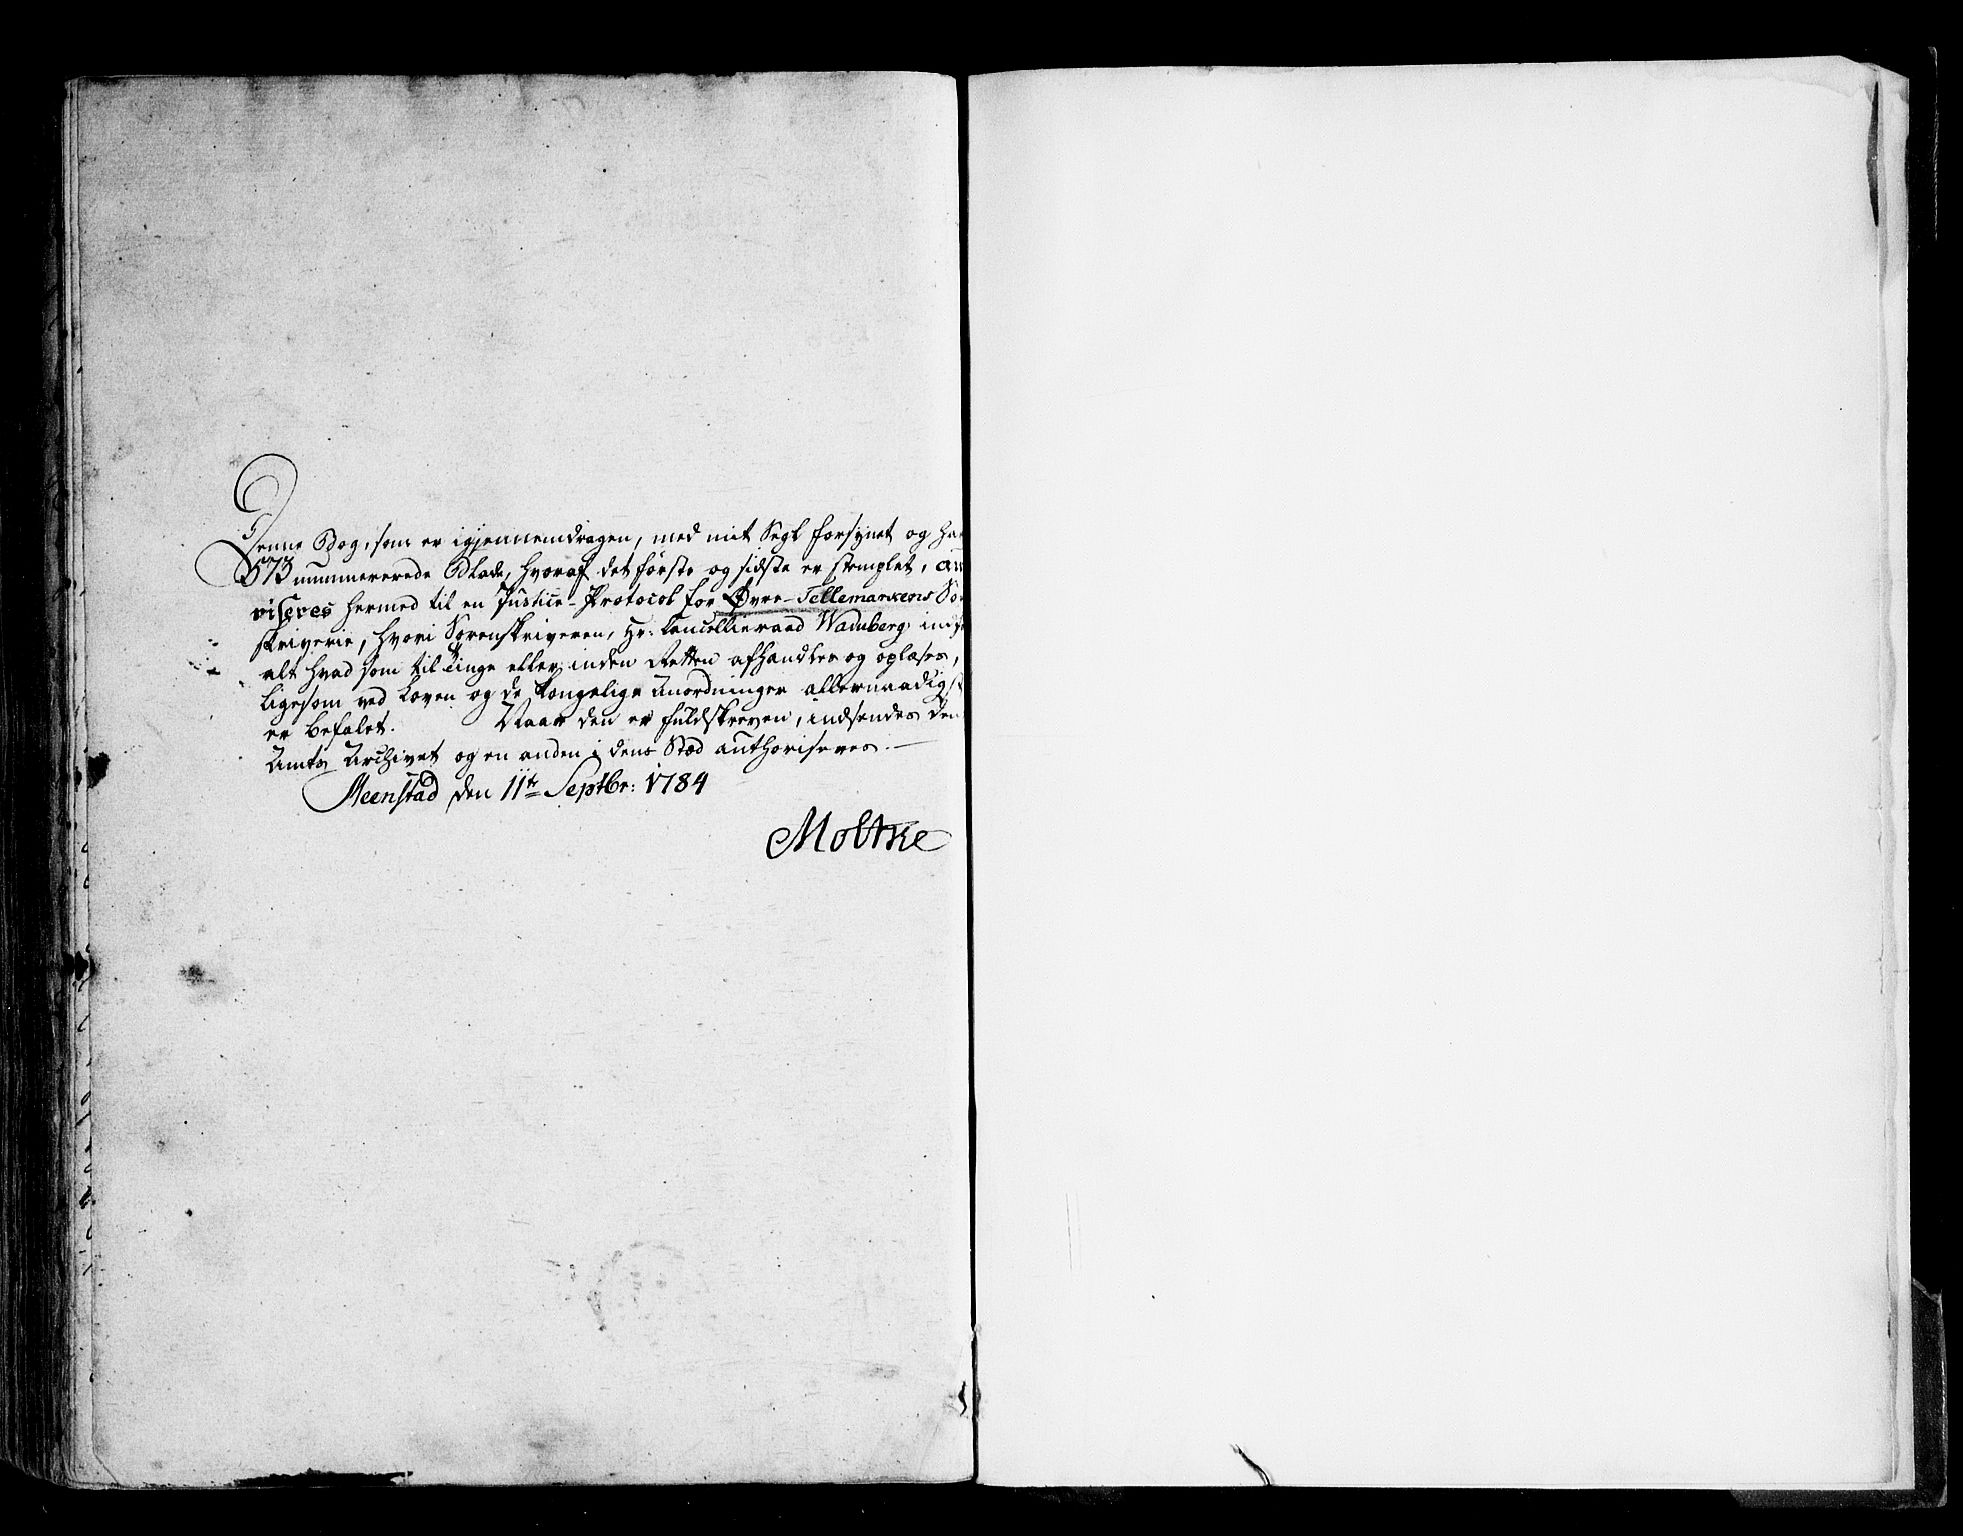 Denne Bog, som er igjennemdragen, med mit Segl forsynet og har
573 nummererede Blade, hvoraf det første og sidste er stemplet, au
viseres hermed til en Justice-Protocol for Øvre-Tellemarkens So
skriverie, hvori Sorenskriveren, Hr: Cancellieraad Wadnberg,
alt hvad som til Tinge eller inden Retten afhandles og oplæses,
ligesom ved Loven og de kongelige Anordninger allernaadigst
er befalet. Naar den er fuldskreven, indsendes den
Amts Archivet og en anden i dens Stæd authoriseres.—
Meenstad den 11te Septbr: 1784
Moltke